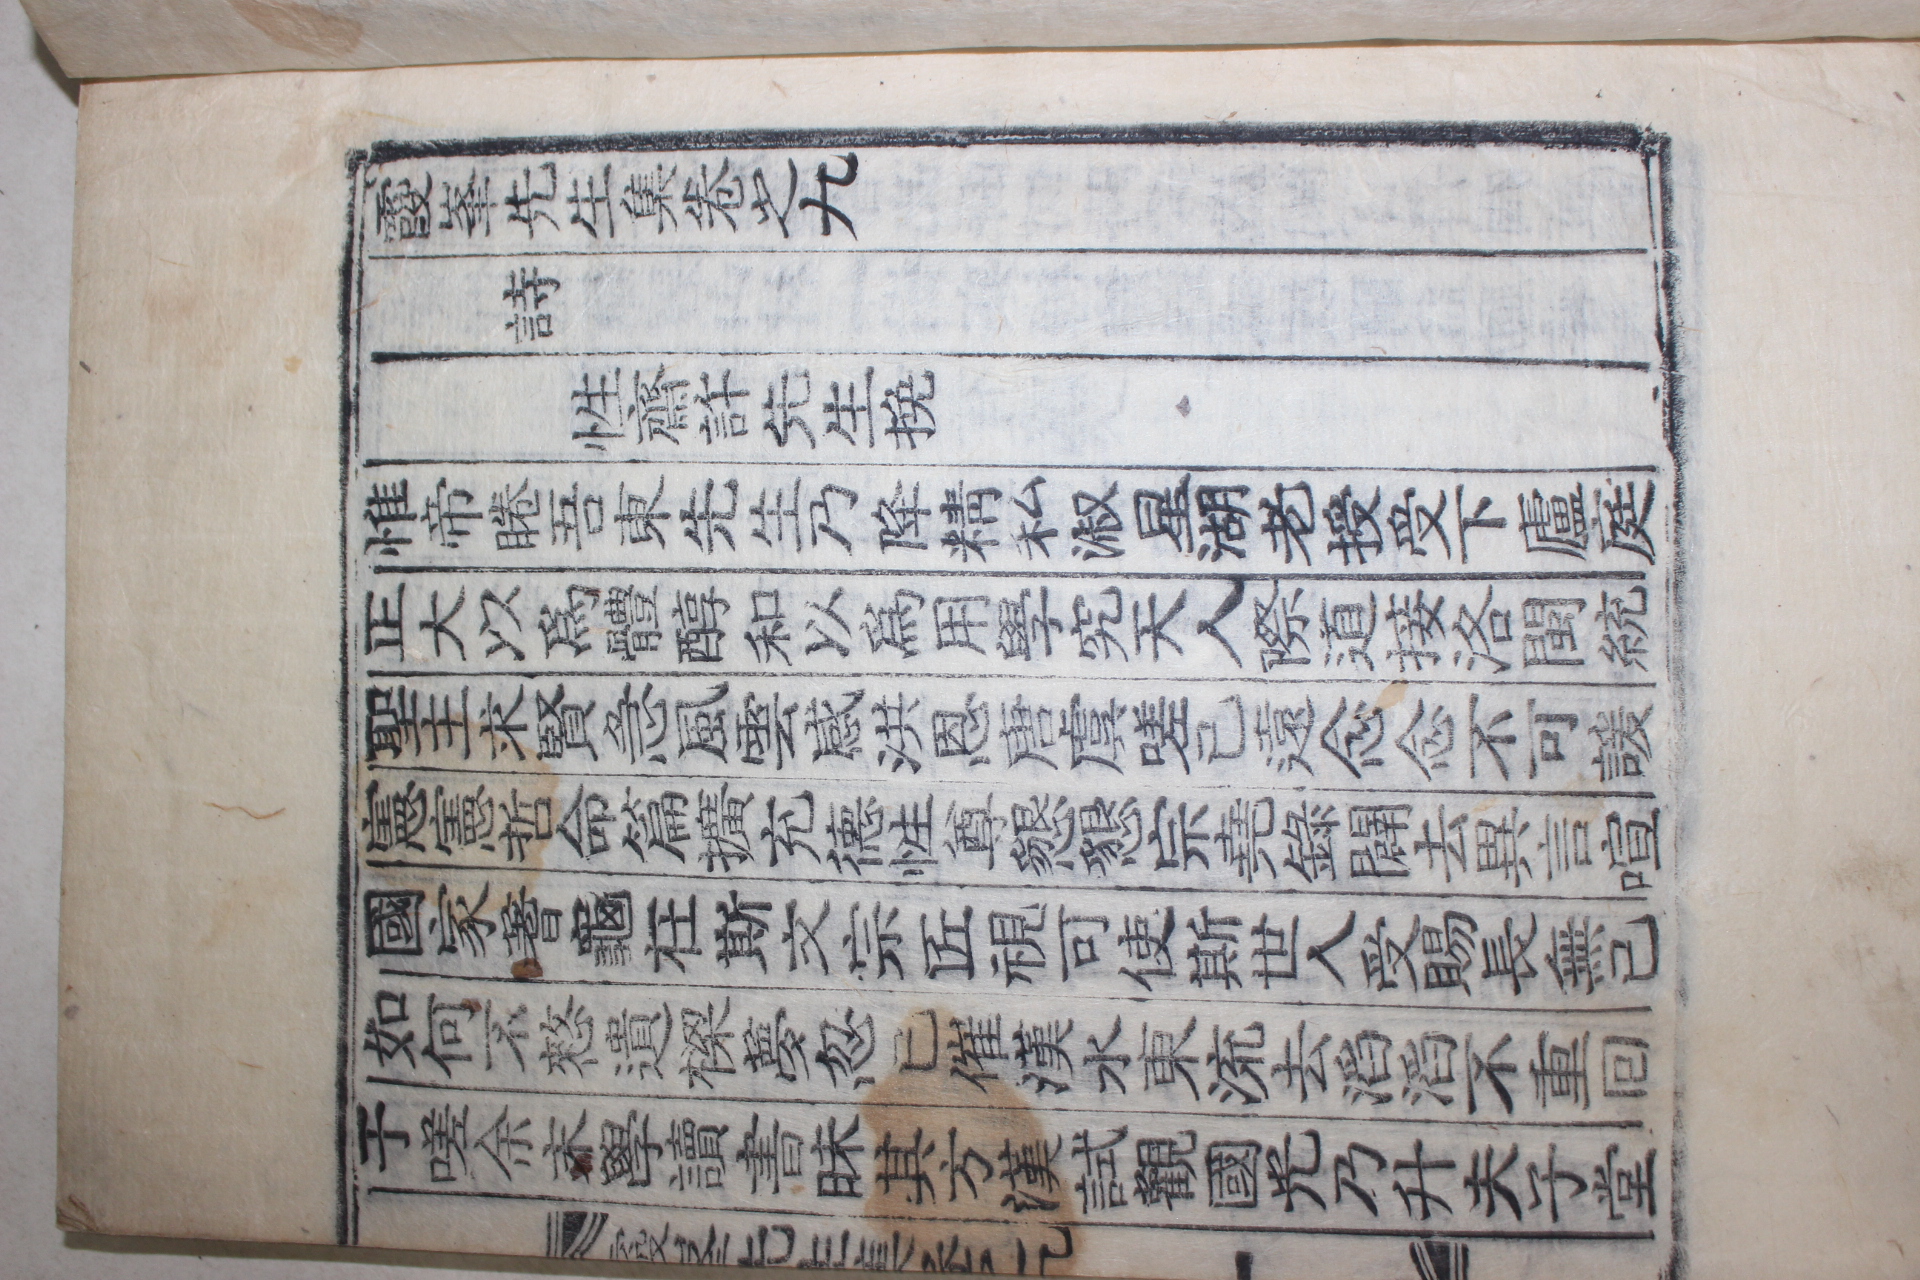 霞峯先生集卷之九
詩
性齋許先生挽
惟帝睠吾東先生乃降精私淑星湖老授受下廬庭
正大以爲體醇和以爲用學究天人際道接洛閩統
聖主求賢急風雲感洪恩唐虞嗟已遠念念不可諼
憲憲哲命篇擴充德性尊懇懇宗堯錄闢去異言喧
國家蓍龜在斯文宗匠視可使斯世人受賜長無已
如何不憖遺樑夢忽已催漢水東流去滔滔不重回
于嗟余末學讀書昧其方漢試觀國光乃升夫子堂
霞峯先生集卷之九 一